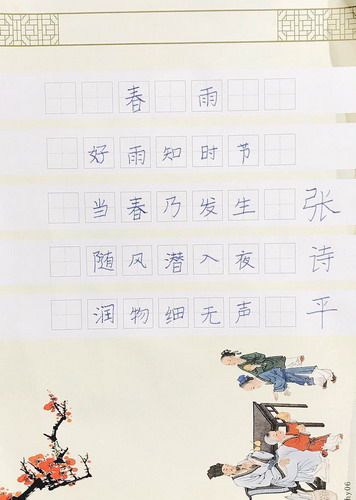 春雨
好雨知时节
当春乃发生
随风潜入夜
润物细无声
张诗平